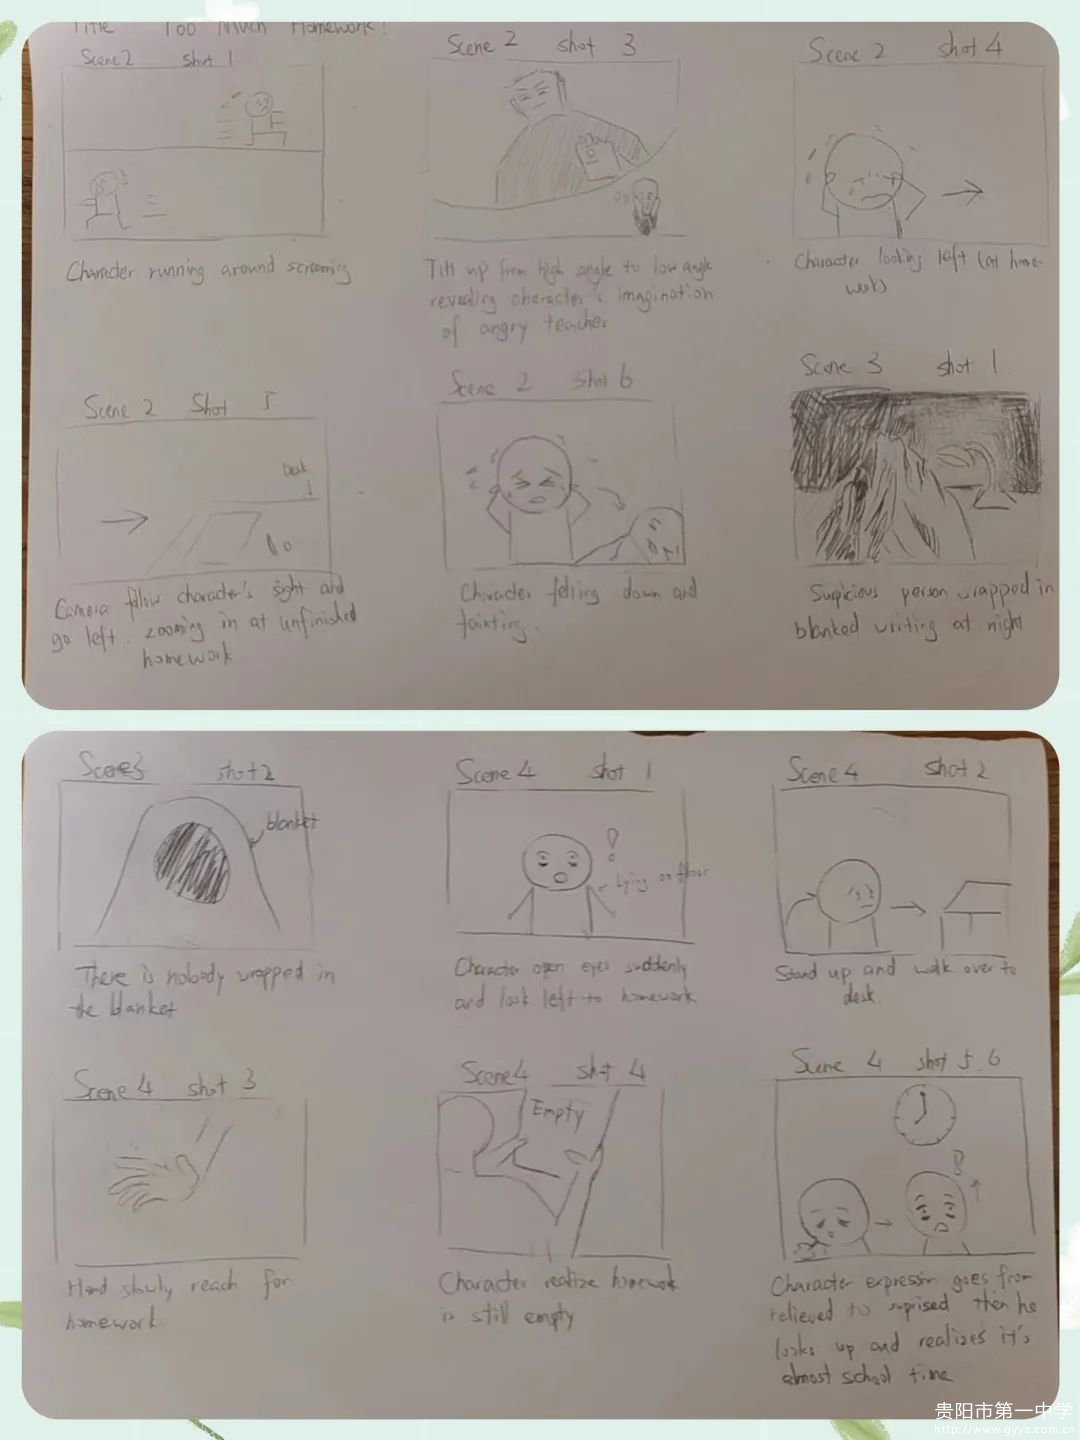 Title Too Much Homework!
Scene 2 shot 1
Character running around screaming
Scene 2 shot 3
Tilt up from high angle to low angle
revealing character's imagination
of angry teacher
Scene 2 shot 4
Character looking left (at home-
work)
Scene 2 Shot 5
Desk
Camera follow character's sight and
go left. zooming in at unfinished
homework
Scene 2 shot 6
Character felling down and
fainting.
Scene 3 shot 1
Suspicious person wrapped in
blanked writing at night
Scene3 shot 2
blanket
There is nobody wrapped in
the blanket
Scene 4 shot 1
!
Lying on floor
Character open eyes suddenly
and look left to homework
Scene 4 shot 2
Stand up and walk over to
desk.
Scene 4 shot 3
Hand slowly reach for
homework.
Scene4 shot 4
Empty
Character realize homework
is still empty
Scene 4 shot 5.6
!
Character expression goes from
relieved to suprised then he
looks up and realizes it's
almost school time
贵阳市第一中学
http://www.gyyz.com.cn